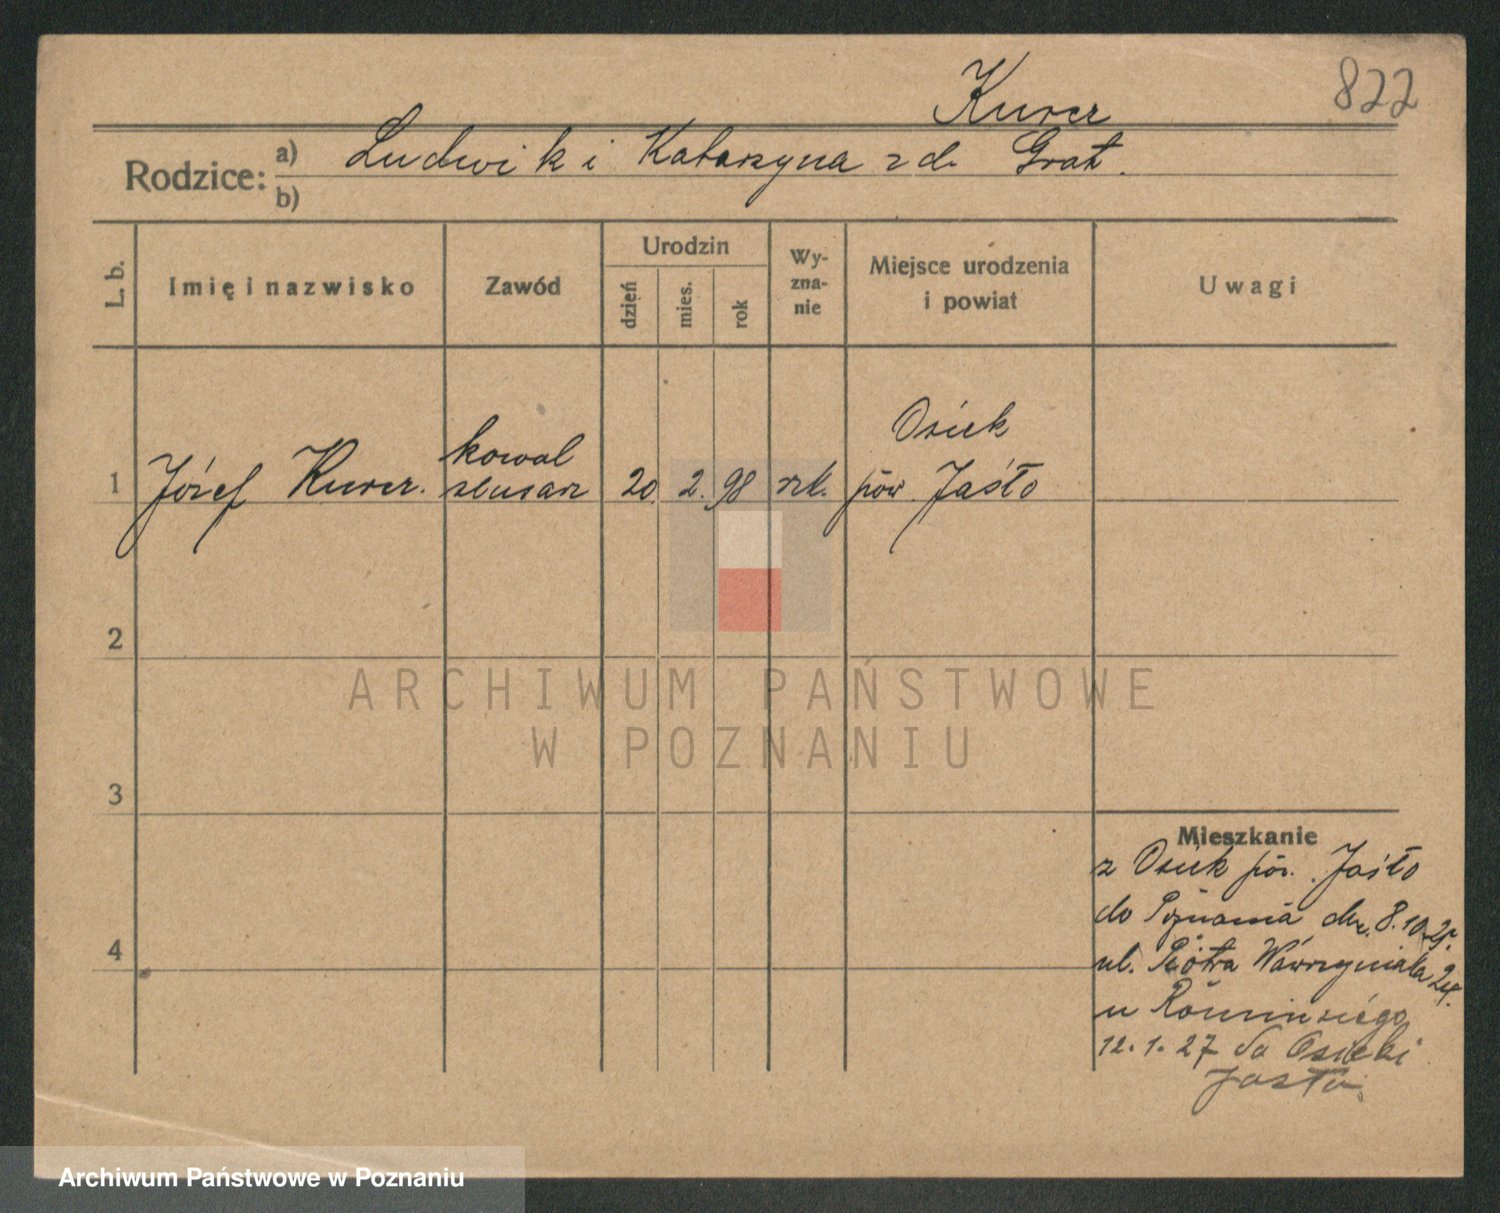 822
Kurcz
Rodzice: a) Ludwik i Katarzyna z d. Grat.
b)
L. b. Imię i nazwisko Zawód Urodzin dzień mies. rok Wyznanie Miejsce urodzenia i powiat Uwagi
kowal Osiek
1 Józef Kurcz. ślusarz 20 2. 98 rzk. pow. Jasło
2
3
4
Mieszkanie
z Osiek pow. Jasło
do Poznania dn. 8.10.25.
ul. Piotra Wawrzyniaka 24.
u
12.1.27 do Osieki
Jasło.
ARCHIWUM PAŃSTWOWE
W POZNANIU
Archiwum Państwowe w Poznaniu